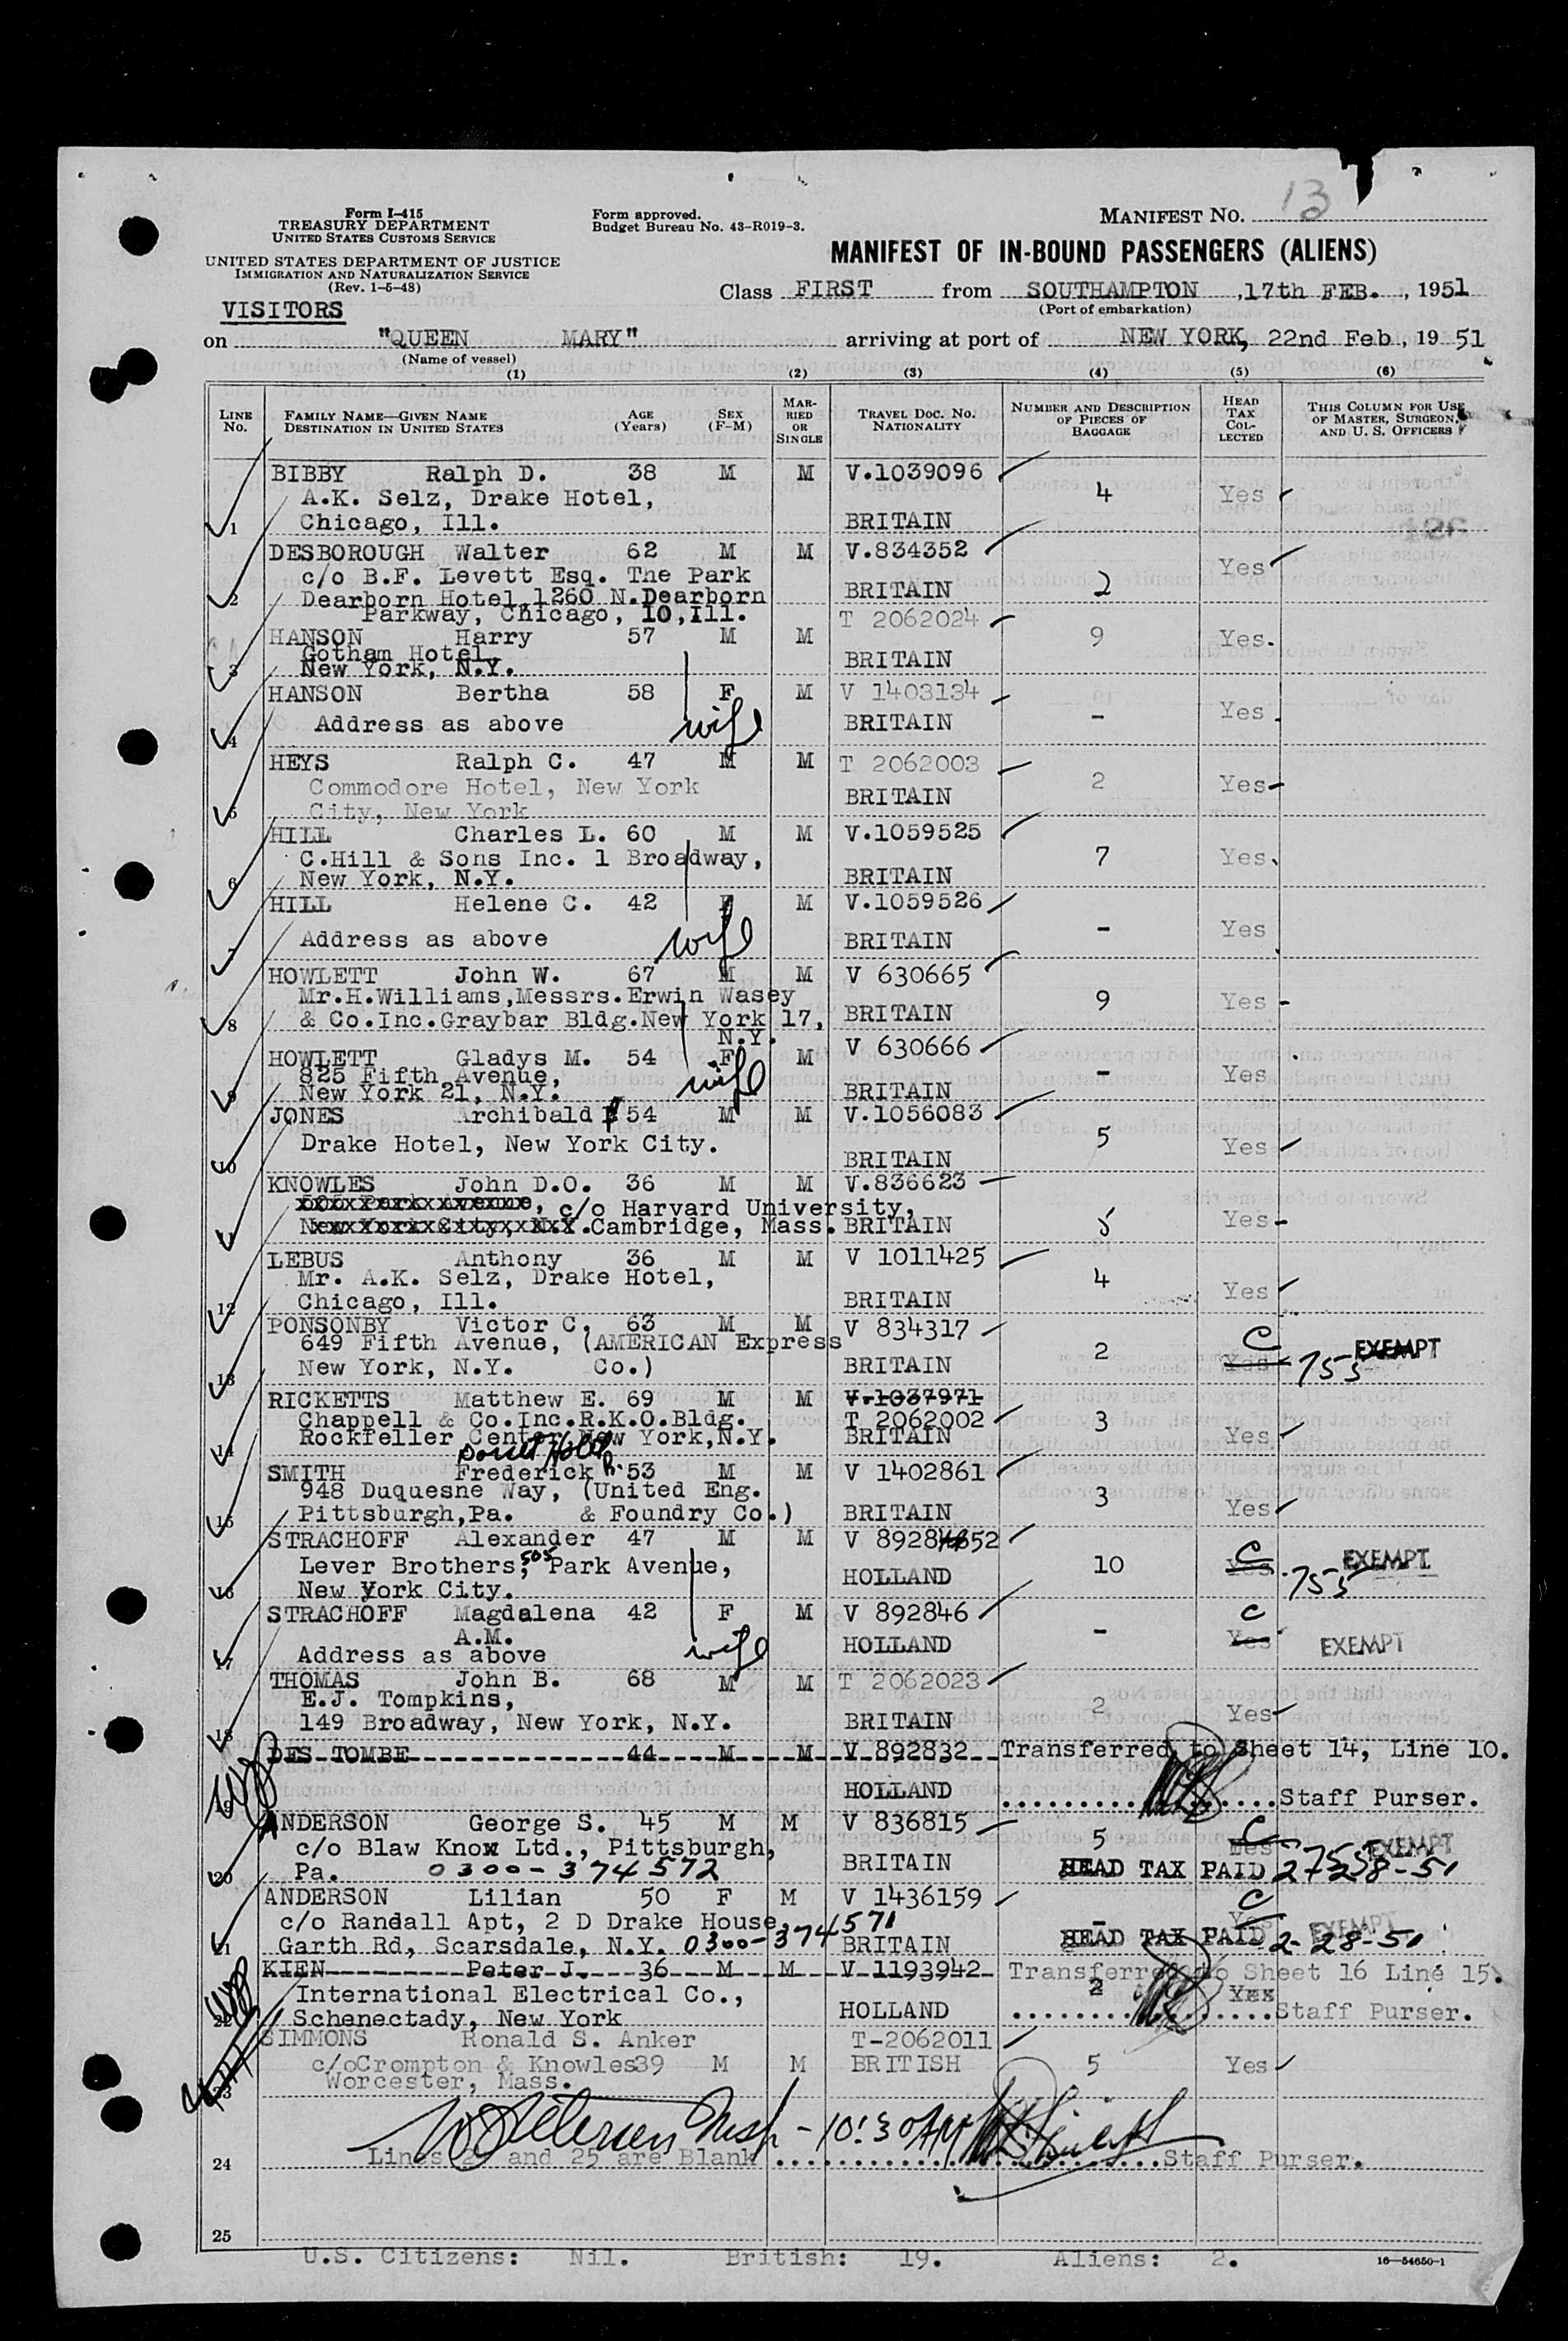 Form I-415
TREASURY DEPARTMENT
UNITED STATES CUSTOMS SERVICE
UNITED STATES DEPARTMENT OF JUSTICE
IMMIGRATION AND NATURALIZATION SERVICE
(Rev. 1-5-48)
Form approved.
Budget Bureau No. 43-R019-3.
MANIFEST NO. 13
MANIFEST OF IN-BOUND PASSENGERS (ALIENS)
Class FIRST from SOUTHAMPTON ,17th FEB. , 1951
(Port of embarkation)
VISITORS
on "QUEEN MARY" arriving at port of NEW YORK, 22nd Feb , 19 51
(Name of vessel)
(1) (2) (3) (4) (5) (6)
LINE No. FAMILY NAME—GIVEN NAME DESTINATION IN UNITED STATES AGE (Years) SEX (F-M) MARRIED OR SINGLE TRAVEL DOC. NO. NATIONALITY NUMBER AND DESCRIPTION OF PIECES OF BAGGAGE HEAD TAX COLLECTED THIS COLUMN FOR USE OF MASTER, SURGEON, AND U. S. OFFICERS
BIBBY Ralph D. 38 M M V.1039096
A.K. Selz, Drake Hotel, 4 Yes
1 Chicago, Ill. BRITAIN
DESBOROUGH Walter 62 M M V.834352
c/o B.F. Levett Esq. The Park Yes
2 Dearborn Hotel,1260 N.Dearborn BRITAIN 2
Parkway, Chicago, 10,Ill.
T 2062024
HANSON Harry 57 M M 9 Yes.
Gotham Hotel,
3 New York, N.Y. BRITAIN
HANSON Bertha 58 F M V 1403134
4 Address as above wife BRITAIN - Yes
HEYS Ralph C. 47 M M T 2062003
Commodore Hotel, New York 2 Yes
5 City, New York BRITAIN
HILL Charles L. 60 M M V.1059525
C.Hill & Sons Inc. 1 Broadway, 7 Yes
6 New York, N.Y. BRITAIN
HILL Helene C. 42 F M V.1059526
7 Address as above wife BRITAIN - Yes
HOWLETT John W. 67 M M V 630665
Mr.H.Williams,Messrs.Erwin Wasey 9 Yes
8 & Co.Inc.Graybar Bldg.New York 17, BRITAIN
N.Y.
HOWLETT Gladys M. 54 F M V 630666
825 Fifth Avenue, wife - Yes
9 New York 21, N.Y. BRITAIN
JONES Archibald 54 M M V.1056083
10 Drake Hotel, New York City. BRITAIN 5 Yes
KNOWLES John D.O. 36 M M V.836623
c/o Harvard University,
11 Cambridge, Mass. BRITAIN 5 Yes
LEBUS Anthony 36 M M V 1011425
Mr. A.K. Selz, Drake Hotel, 4 Yes
12 Chicago, Ill. BRITAIN
PONSONBY Victor C. 63 M M V 834317
649 Fifth Avenue, (AMERICAN Express 2 C EXEMPT
13 New York, N.Y. Co.) BRITAIN Yes 755
RICKETTS Matthew E. 69 M M V.1037971
Chappell & Co.Inc.R.K.O.Bldg. T 2062002 3
14 Rockfeller Center New York,N.Y. BRITAIN Yes
Dorset Hotel
SMITH Frederick R. 53 M M V 1402861
948 Duquesne Way, (United Eng. 3 Yes
15 Pittsburgh,Pa. & Foundry Co.) BRITAIN
STRACHOFF Alexander 47 M M V 892852
Lever Brothers, 505 Park Avenue, 10 C Yes EXEMPT
16 New York City. HOLLAND 755
STRACHOFF Magdalena 42 F M V 892846 C
A.M. - Yes EXEMPT
17 Address as above wife HOLLAND
THOMAS John B. 68 M M T 2062023
E.J. Tompkins, 2 Yes
18 149 Broadway, New York, N.Y. BRITAIN
DES TOMBE 44 M M V 892832 Transferred to Sheet 14, Line 10.
19 HOLLAND Staff Purser.
ANDERSON George S. 45 M M V 836815 C
c/o Blaw Knox Ltd., Pittsburgh, 5 Yes 755 EXEMPT
20 Pa. 0300-374572 BRITAIN HEAD TAX PAID 2-28-51
ANDERSON Lilian 50 F M V 1436159 C
c/o Randall Apt, 2 D Drake House, - Yes EXEMPT
21 Garth Rd, Scarsdale, N.Y. 0300-374571 BRITAIN HEAD TAX PAID 2-28-51
KIEN Peter J. 36 M M V 1193942 Transferred to Sheet 16 Line 15.
International Electrical Co., 2 Yes
22 Schenectady, New York HOLLAND Staff Purser.
SIMMONS Ronald S. Anker T-2062011
c/oCrompton & Knowles39 M M BRITISH 5 Yes
23 Worcester, Mass.
10:30 AM
24 Lines 24 and 25 are Blank Staff Purser.
25
U.S. Citizens: Nil. British: 19. Aliens: 2.
16—54650-1